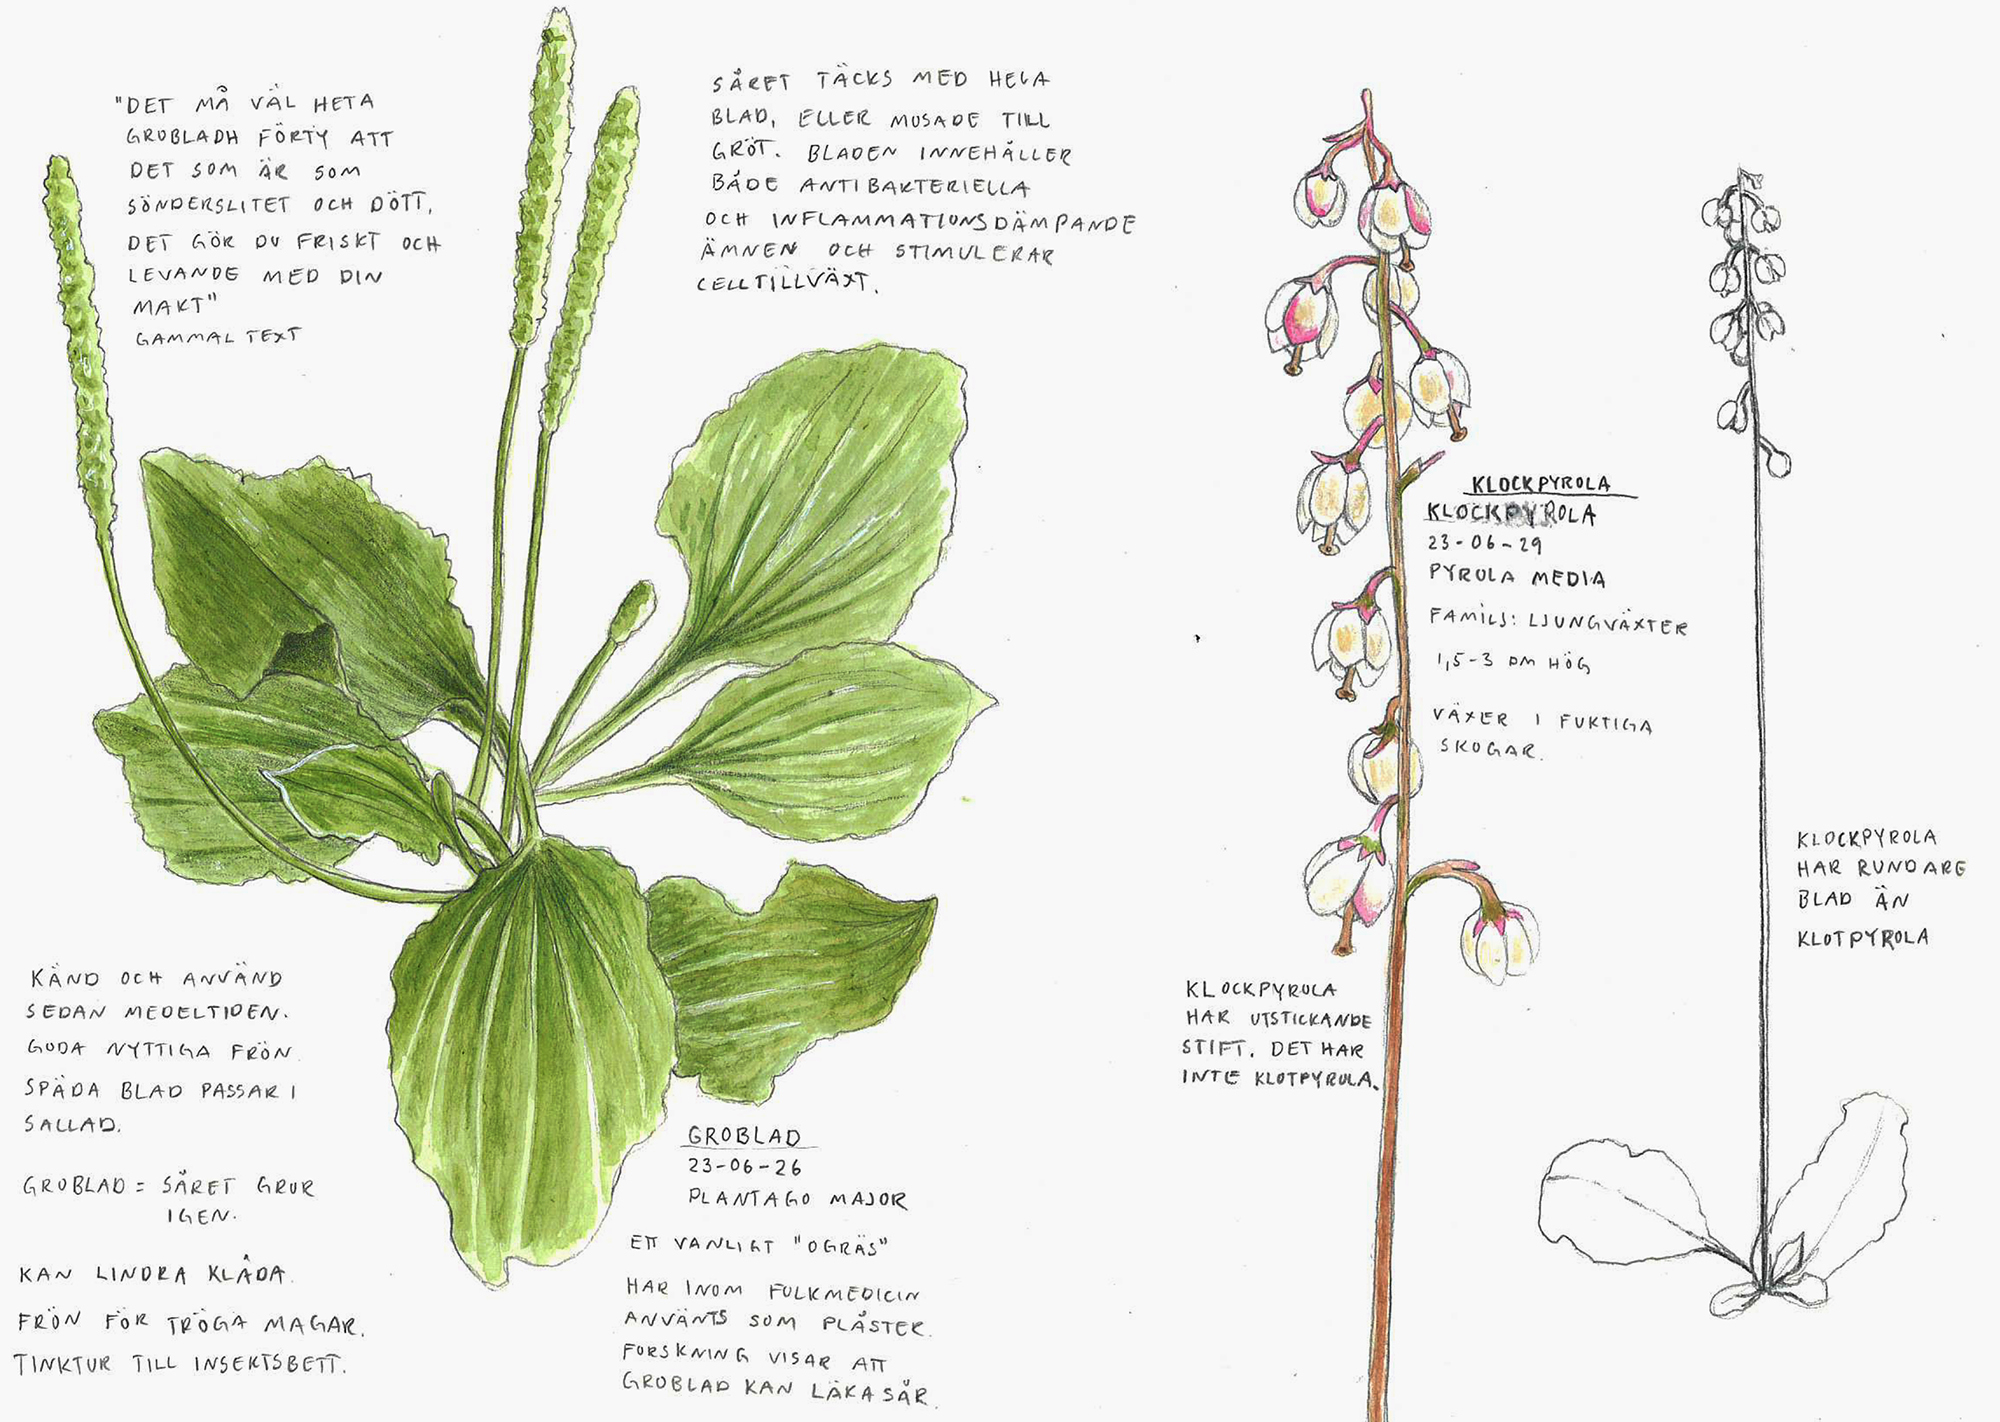 "DET MÅ VÄL HETA
GROBLADH FÖRTY ATT
DET SOM ÄR SOM
SÖNDERSLITET OCH DÖTT,
DET GÖR DU FRISKT OCH
LEVANDE MED DIN
MAKT"
GAMMAL TEXT
SÅRET TÄCKS MED HELA
BLAD, ELLER MOSADE TILL
GRÖT. BLADEN INNEHÅLLER
BÅDE ANTIBAKTERIELLA
OCH INFLAMMATIONSDÄMPANDE
ÄMNEN OCH STIMULERAR
CELLTILLVÄXT.
KÄND OCH ANVÄND
SEDAN MEDELTIDEN.
GODA NYTTIGA FRÖN.
SPÄDA BLAD PASSAR I
SALLAD.
GROBLAD = SÅRET GROR
IGEN.
KAN LINDRA KLÅDA.
FRÖN FÖR TRÖGA MAGAR.
TINKTUR TILL INSEKTSBETT.
GROBLAD
23-06-26
PLANTAGO MAJOR
ETT VANLIGT "OGRÄS"
HAR INOM FOLKMEDICIN
ANVÄNTS SOM PLÅSTER.
FORSKNING VISAR ATT
GROBLAD KAN LÄKA SÅR.
KLOCKPYROLA
KLOCKPYROLA
23-06-29
PYROLA MEDIA
FAMILJ: LJUNGVÄXTER
1,5-3 DM HÖG
VÄXER I FUKTIGA
SKOGAR.
KLOCKPYROLA
HAR UTSTICKANDE
STIFT. DET HAR
INTE KLOTPYROLA.
KLOCKPYROLA
HAR RUNDARE
BLAD ÄN
KLOTPYROLA